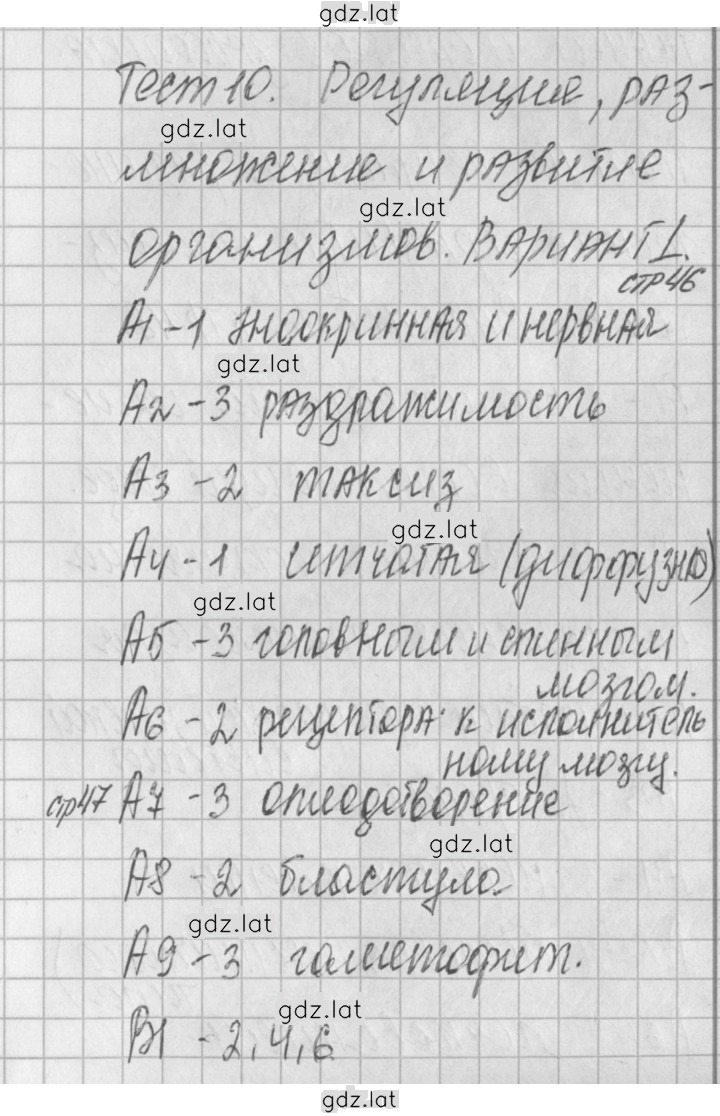 gdz.lat
Тест 10. Регуляция, раз-
gdz.lat
множение и развитие
gdz.lat
организмов. Вариант 1.
стр 46
А1 - 1 эндокринная и нервная
gdz.lat
А2 - 3 раздражимость
А3 - 2 таксиз
gdz.lat
А4 - 1 сетчатая (диффузно)
gdz.lat
А5 - 3 головным и спинным
мозгом.
А6 - 2 рецептора к исполнитель
ному мозгу.
стр 47 А7 - 3 оплодотворение
gdz.lat
А8 - 2 бластула
gdz.lat
А9 - 3 гаметофит.
gdz.lat
В1 - 2, 4, 6
gdz.lat